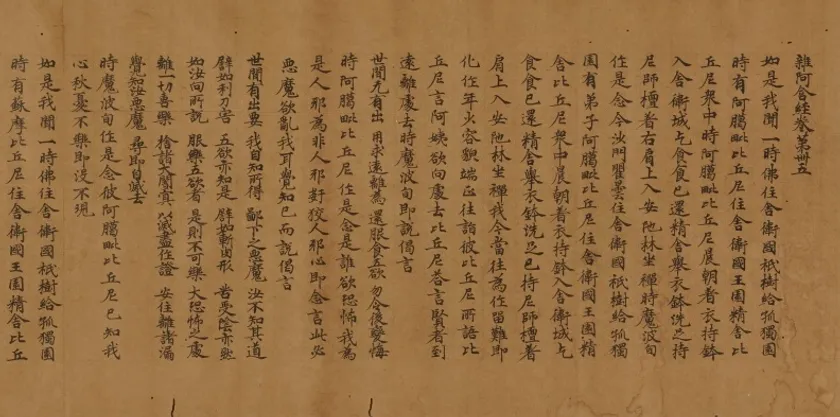 雜阿含經卷第卌五
如是我聞一時佛住舍衛國祇樹給孤獨園
時有阿臈毗比丘尼住舍衛國王園精舍比
丘尼衆中時阿臈毗比丘尼晨朝著衣持鉢
入舍衛城乞食食已還精舍舉衣鉢洗足持
尼師檀著右肩上入安陁林坐禪時魔波旬
作是念今沙門瞿曇住舍衛國祇樹給孤獨
園有弟子阿臈毗比丘尼住舍衛國王園精
舍比丘尼衆中晨朝著衣持鉢入舍衛城乞
食食已還精舍舉衣鉢洗足已持尼師檀著
肩上入安陁林坐禪我今當往爲作留難即
化作年少容貌端正往詣彼比丘尼所語比
丘尼言阿姨欲何處去比丘尼荅言賢者到
遠離處去時魔波旬即說偈言
世間无有出 用求遠離爲 還服食五欲 勿令後變悔
時阿臈毗比丘尼作是念是誰欲恐怖我爲
是人耶爲非人耶姧狡人耶心即念言此必
惡魔欲亂我耳覺知已而說偈言
世間有出要 我自知所得 鄙下之惡魔 汝不知其道
譬如利刀害 五欲亦如是 譬如斬肉形 苦受陰亦然
如汝向所說 服樂五欲者 是則不可樂 大恐怖之處
離一切喜樂 捨諸大闇冥 以滅盡作證 安住離諸漏
覺知汝惡魔 尋即自滅去
時魔波旬作是念彼阿臈毗比丘尼已知我
心愁憂不樂即沒不現
如是我聞一時佛住舍衛國祇樹給孤獨園
時有蘇摩比丘尼住舍衛國王園精舍比丘